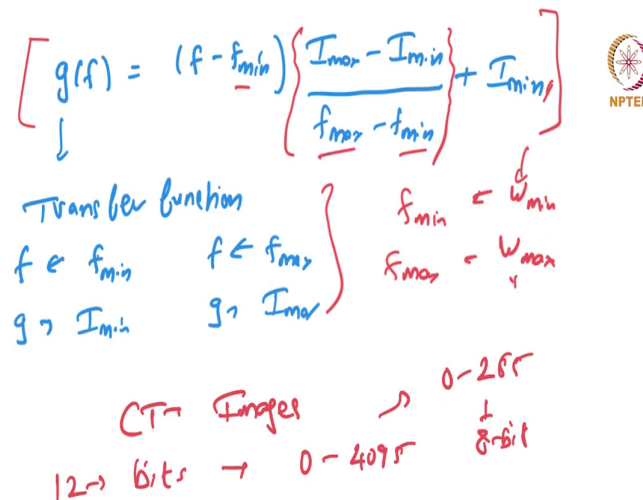 [ g(f) = (f - f_min) { (I_max - I_min) / (f_max - f_min) } + I_min ]
NPTEL
↓
Transfer function
f ← f_min f ← f_max
g → I_min g → I_max
f_min ← W_min
f_max ← W_max
CT → Images → 0 - 255
↓
8-bit
12 → bits → 0 - 4095